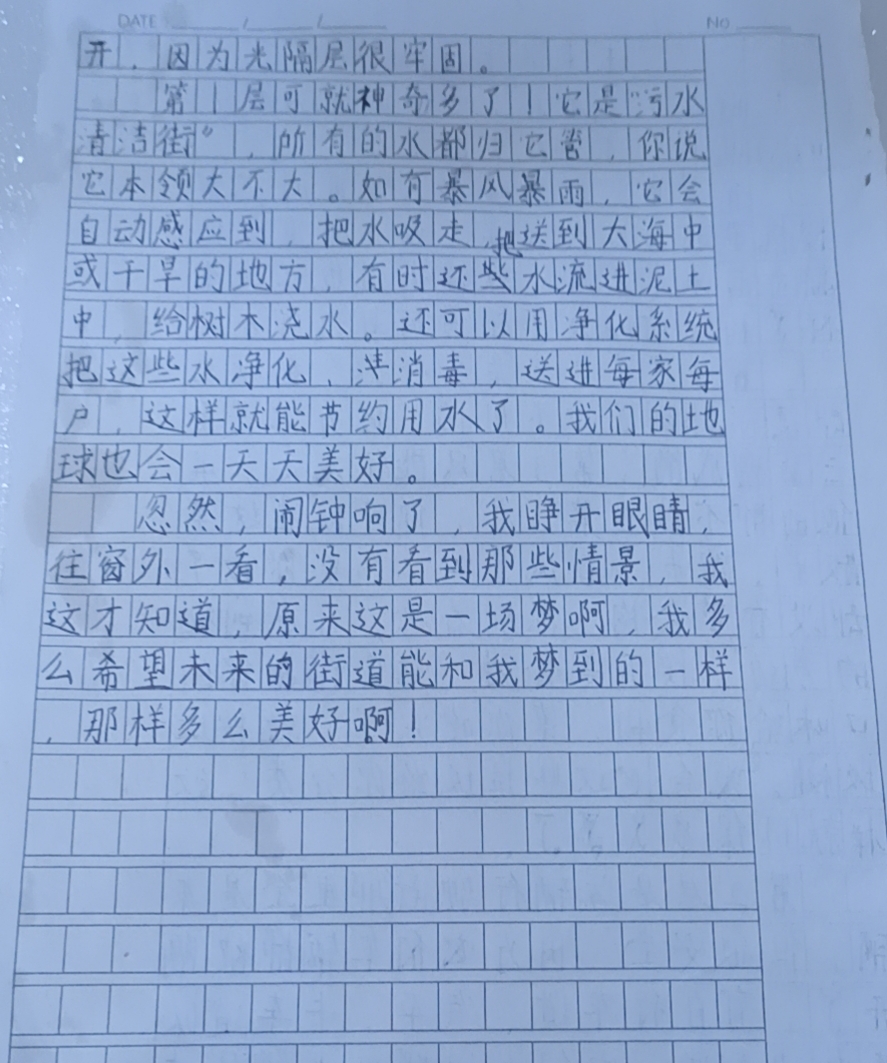 DATE / /
NO
开，因为光隔层很牢固。
第1层可就神奇多了！它是"污水
清洁街"，所有的水都归它管，你说
它本领大不大。如有暴风暴雨，它会
自动感应到，把水吸走，把送到大海中
或干旱的地方，有时还些水流进泥土
中，给树木浇水。还可以用净化系统
把这些水净化、消毒，送进每家每
户，这样就能节约用水了。我们的地
球也会一天天美好。
忽然，闹钟响了，我睁开眼睛，
往窗外一看，没有看到那些情景，我
这才知道，原来这是一场梦啊，我多
么希望未来的街道能和我梦到的一样
，那样多么美好啊！